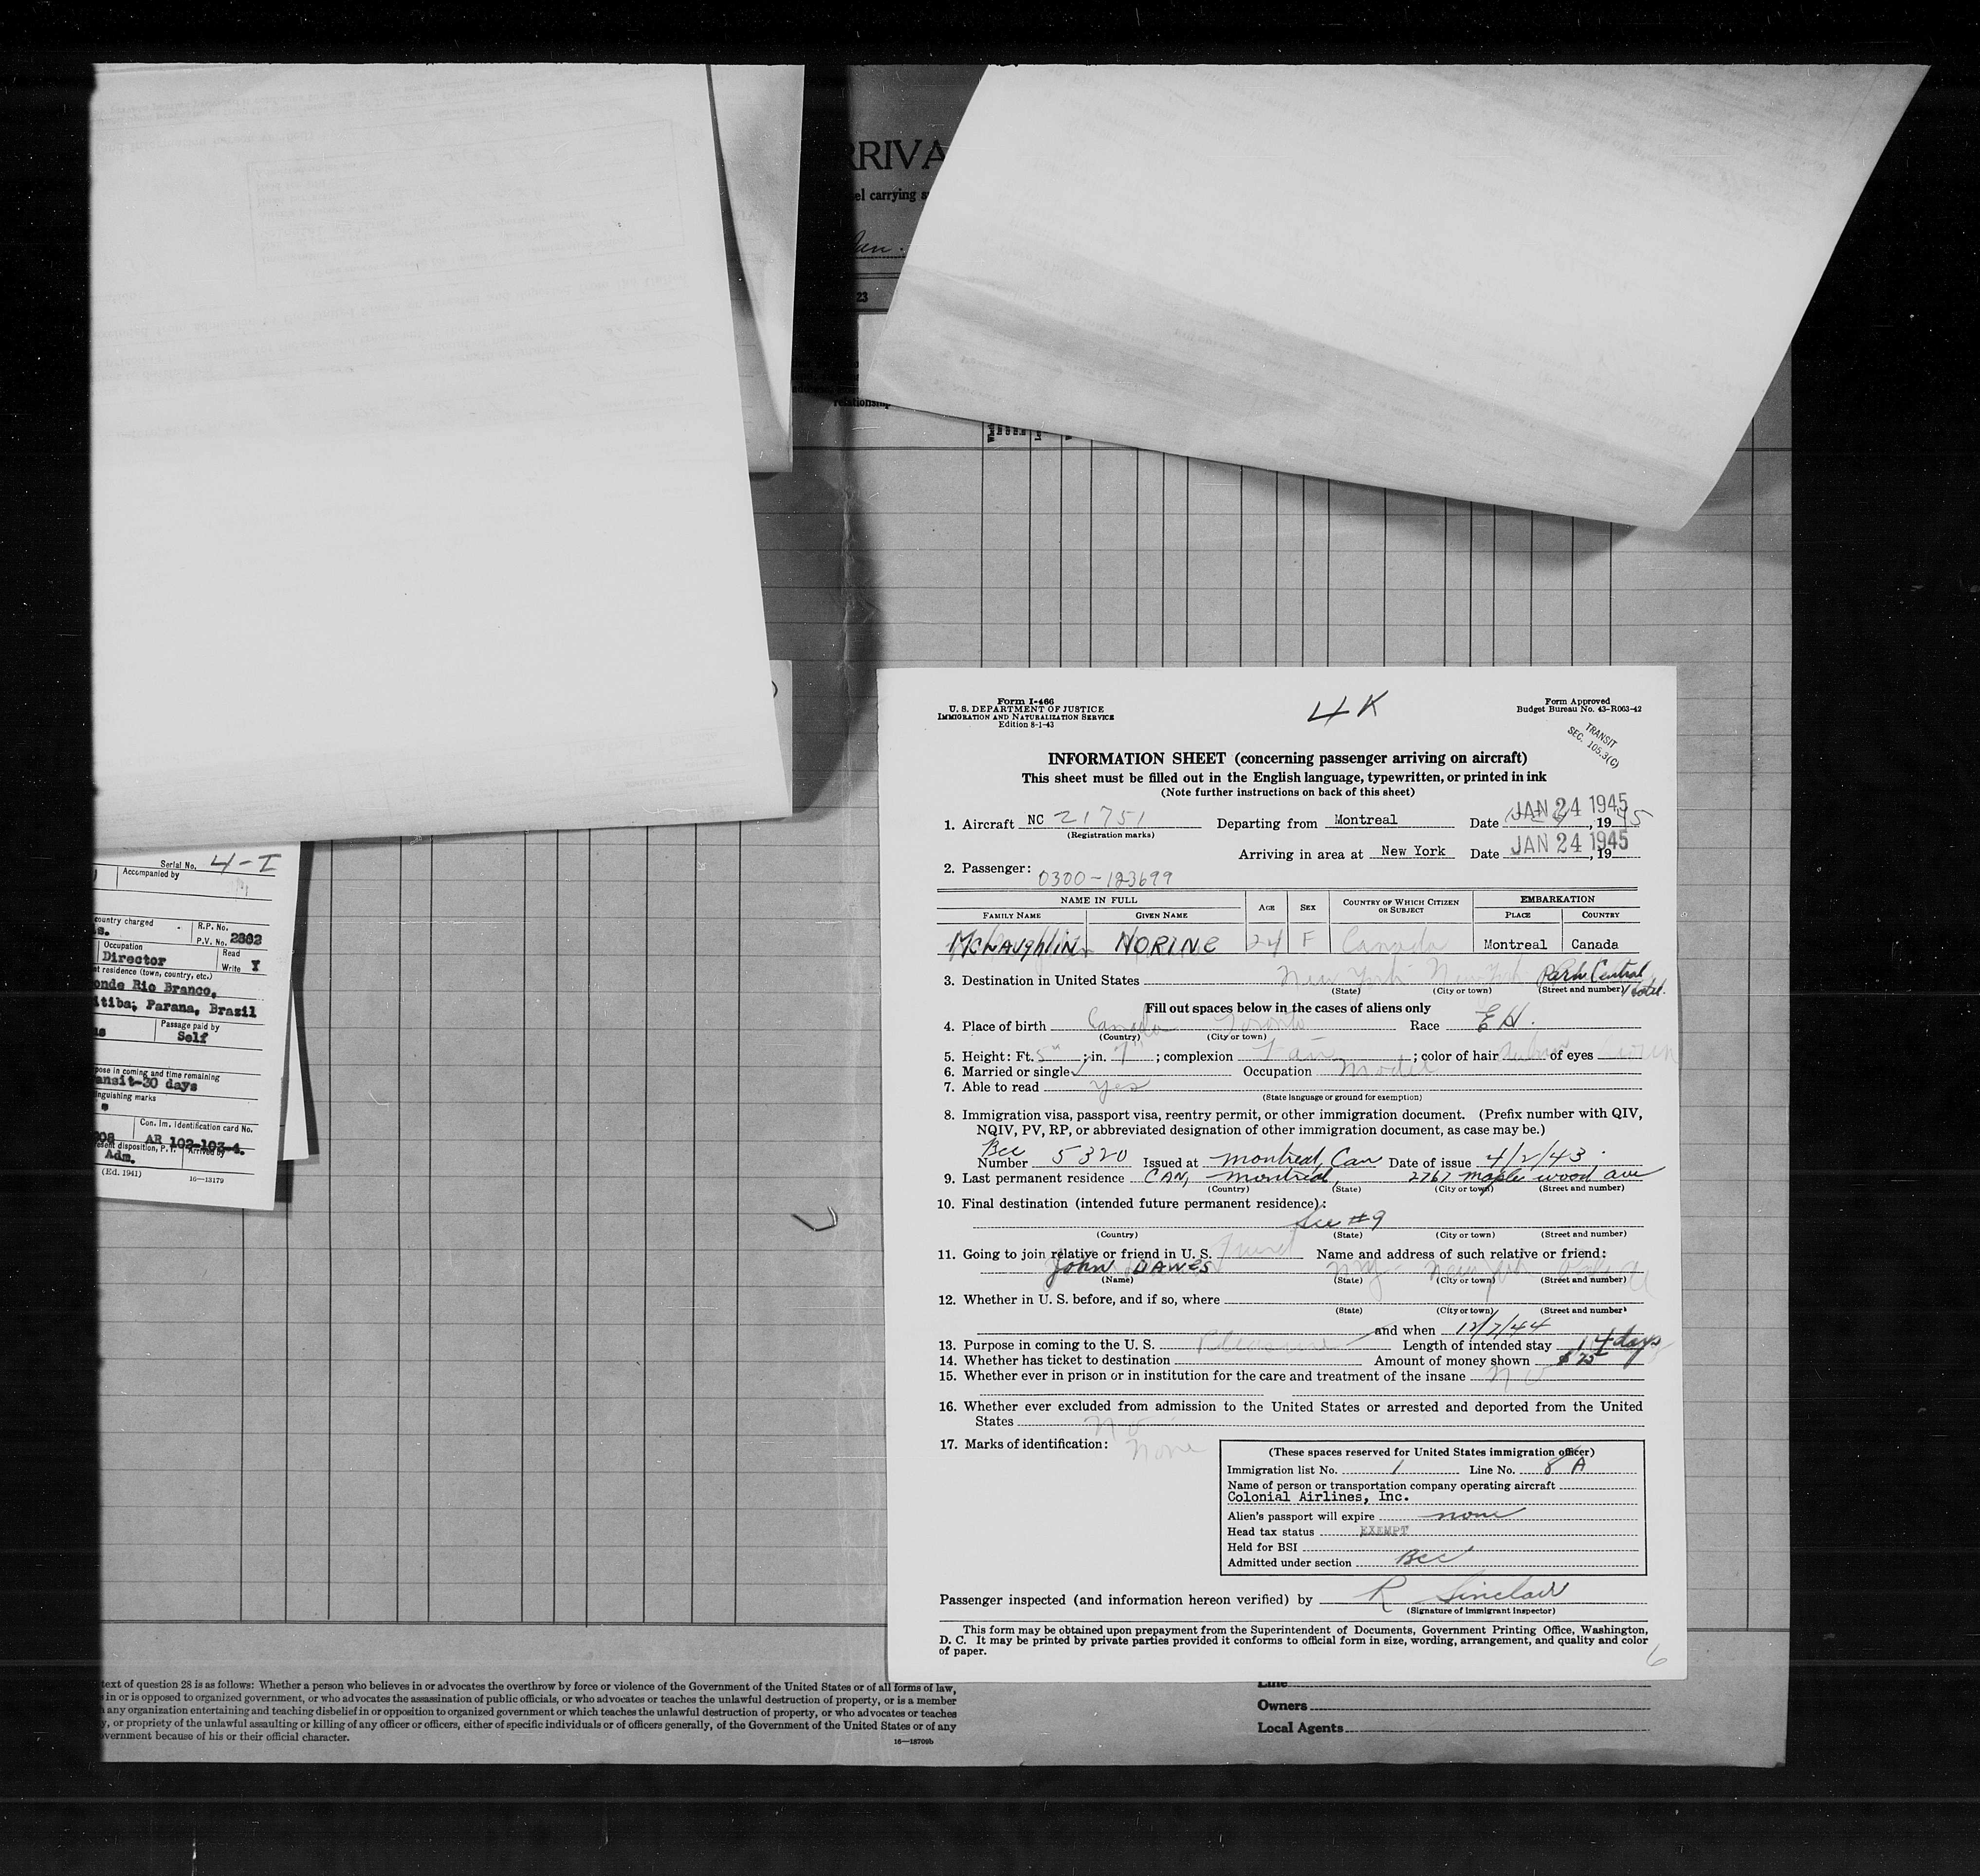 RRIVA
el carrying a
Jan.
23
relationship
Serial No. 4-I
Accompanied by
country charged
R.P. No.
P.V. No. 2882
Occupation
Director
Read
Write Y
st residence (town, country, etc.)
onde Rio Branco,
itiba; Parana, Brazil
Passage paid by
Self
pose in coming and time remaining
ansit-30 days
inguishing marks
Con. Im. Identification card No.
AR 102-103-4.
esent disposition, P. I.
Arrived by
Adm.
(Ed. 1941)
16—13179
Form I-466
U. S. DEPARTMENT OF JUSTICE
IMMIGRATION AND NATURALIZATION SERVICE
Edition 8-1-43
4K
Form Approved
Budget Bureau No. 43-R063-42
TRANSIT
SEC. 105.3(C)
INFORMATION SHEET (concerning passenger arriving on aircraft)
This sheet must be filled out in the English language, typewritten, or printed in ink
(Note further instructions on back of this sheet)
1. Aircraft NC 21751 Departing from Montreal Date JAN 24 1945, 1945
(Registration marks)
Arriving in area at New York Date JAN 24 1945, 19
2. Passenger: 0300-123699
NAME IN FULL
AGE
SEX
COUNTRY OF WHICH CITIZEN OR SUBJECT
EMBARKATION
FAMILY NAME
GIVEN NAME
PLACE
COUNTRY
McLAughlin NORINE 24 F Canada Montreal Canada
3. Destination in United States New York New York Park Central Hotel.
(State) (City or town) (Street and number)
Fill out spaces below in the cases of aliens only
4. Place of birth Canada Toronto Race EH.
(Country) (City or town)
5. Height: Ft. 5" ; in. 7" ; complexion Fair ; color of hair of eyes
6. Married or single Occupation Model
7. Able to read yes
(State language or ground for exemption)
8. Immigration visa, passport visa, reentry permit, or other immigration document. (Prefix number with QIV,
NQIV, PV, RP, or abbreviated designation of other immigration document, as case may be.)
Bcc
Number 5320 Issued at Montreal, Can Date of issue 4/2/43
9. Last permanent residence CAN, Montreal, 2767 maple wood ave
(Country) (State) (City or town) (Street and number)
10. Final destination (intended future permanent residence):
See #9
(Country) (State) (City or town) (Street and number)
11. Going to join relative or friend in U. S. Friend Name and address of such relative or friend:
John DAWES N.Y. New York
(Name) (State) (City or town) (Street and number)
12. Whether in U. S. before, and if so, where
(State) (City or town) (Street and number)
and when 12/7/44
13. Purpose in coming to the U. S. Pleasure Length of intended stay 14 days
14. Whether has ticket to destination Amount of money shown $75
15. Whether ever in prison or in institution for the care and treatment of the insane No
16. Whether ever excluded from admission to the United States or arrested and deported from the United
States No
17. Marks of identification: None
(These spaces reserved for United States immigration officer)
Immigration list No. 1 Line No. 8 A
Name of person or transportation company operating aircraft
Colonial Airlines, Inc.
Alien's passport will expire none
Head tax status EXEMPT
Held for BSI
Admitted under section Bcc
Passenger inspected (and information hereon verified) by R Sinclair
(Signature of immigrant inspector)
This form may be obtained upon prepayment from the Superintendent of Documents, Government Printing Office, Washington,
D. C. It may be printed by private parties provided it conforms to official form in size, wording, arrangement, and quality and color
of paper.
6
text of question 28 is as follows: Whether a person who believes in or advocates the overthrow by force or violence of the Government of the United States or of all forms of law,
in or is opposed to organized government, or who advocates the assassination of public officials, or who advocates or teaches the unlawful destruction of property, or is a member
any organization entertaining and teaching disbelief in or opposition to organized government or which teaches the unlawful destruction of property, or who advocates or teaches
y, or propriety of the unlawful assaulting or killing of any officer or officers, either of specific individuals or of officers generally, of the Government of the United States or of any
vernment because of his or their official character.
16—18709b
Line
Owners
Local Agents